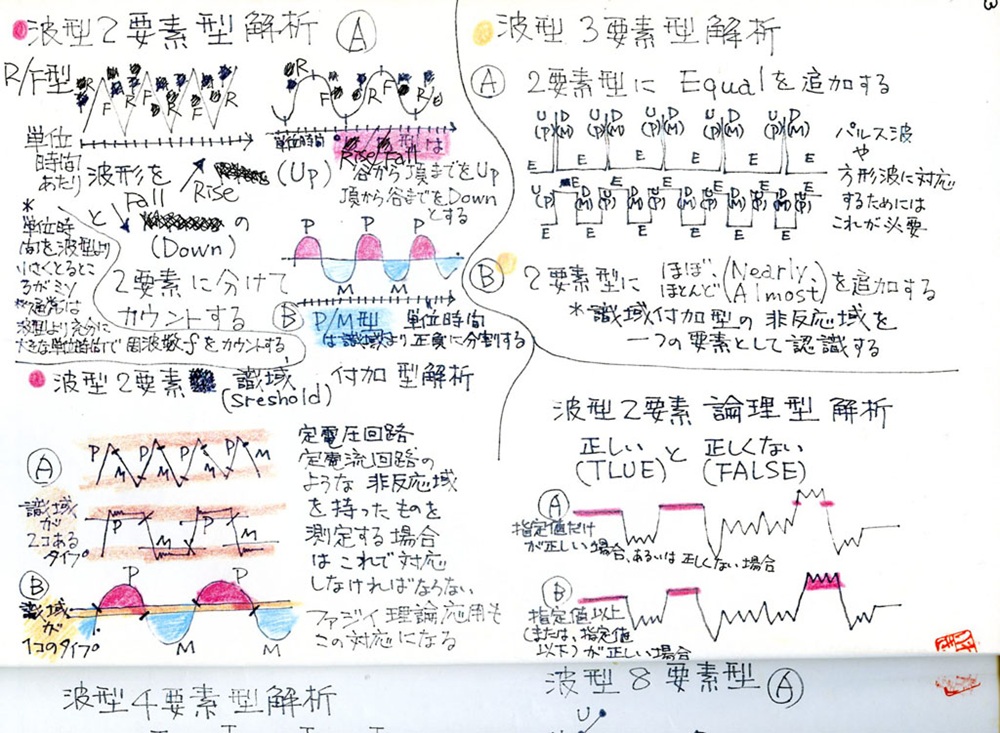 波型2要素型解析 A
R/F型
R R R R
F F F F
単位
時間
あたり
波形を
Rise
Fall
と
の
(Up)
(Down)
2要素に分けて
カウントする
*
単位時
間を波型より
小さくとるとこ
ろがミソ
*通常は
波型より充分に
大きな単位時間で周波数fをカウントする
R F R F R
単位時間
R/F型は
Rise/Fall
谷から頂までをUp
頂から谷までをDown
とする
P P P
M M
B P/M型 単位時間
は識域より正負に分割する
波型2要素 識域 付加型解析
(Sreshold)
A
P P P P
M M M M
識域
が
2コある
タイプ。
P P
M M
B
P P
識域
が
1コのタイプ。
M M
定電圧回路
定電流回路の
ような非反応域
を持ったものを
測定する場合
はこれで対応
しなければならない
ファジイ理論応用も
この対応になる
3
波型3要素型解析
A 2要素型に Equalを追加する
U D U D U D U D U D
(P) (M) (P) (M) (P) (M) (P) (M) (P) (M)
E E E E E
パルス波
や
方形波に対応
するためには
これが必要
E E E E
U D U D U D U D
(P) (M) (P) (M) (P) (M) (P) (M)
E E E E
B 2要素型に ほぼ、ほとんど (Nearly, Almost) を追加する
*識域付加型の非反応域を
一つの要素として認識する
波型2要素 論理型解析
正しい と 正しくない
(TLUE) (FALSE)
A
指定値だけ
が正しい場合、あるいは正しくない場合
B
指定値以上
(または、指定値
以下)が正しい場合
波型4要素型解析
波型8要素型 A
U